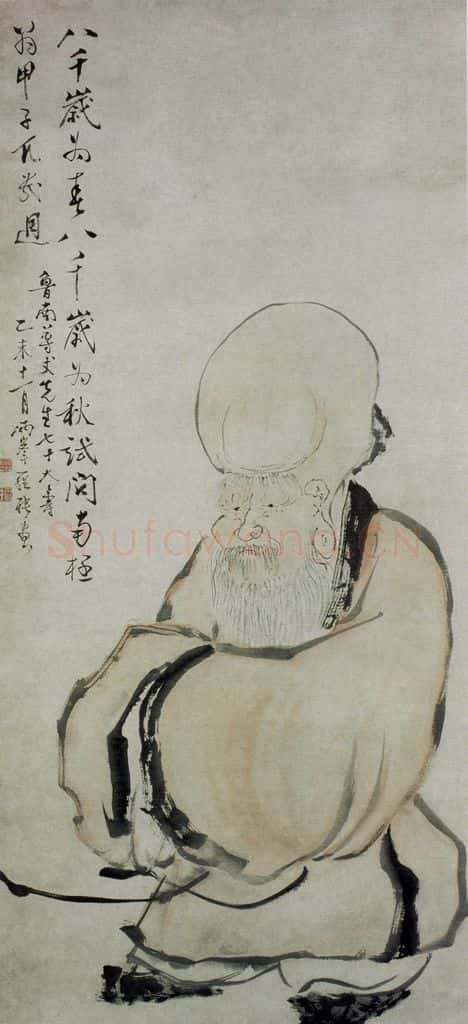 八千歲為春八千歲為秋試問南極
翁甲子凡幾週
魯南尊丈先生七十大壽
乙未十一月兩峯羅聘畫
Shufawang.CN